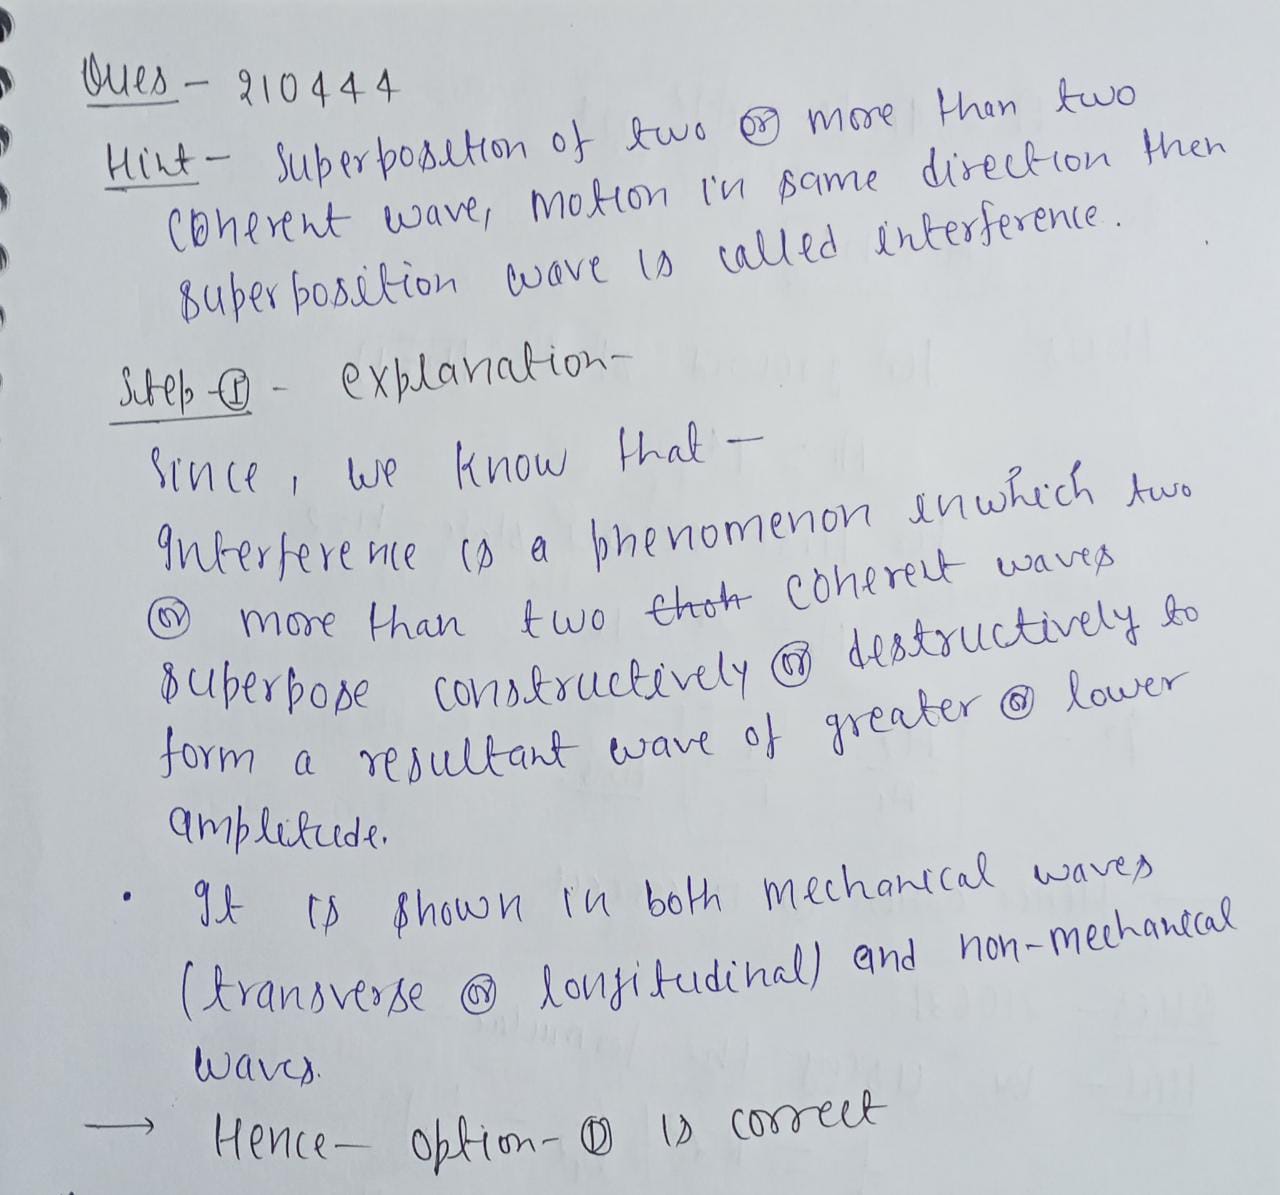 Ques - 210444
Hint - Superposition of two or more than two
coherent wave, motion in same direction then
superposition wave is called interference.
Step-① - explanation-
Since, we know that -
Interference is a phenomenon inwhich two
or more than two coherent waves
superpose constructively or destructively to
form a resultant wave of greater or lower
amplitude.
• It is shown in both mechanical waves
(transverse or longitudinal) and non-mechanical
waves.
→ Hence- option- Ⓓ is correct